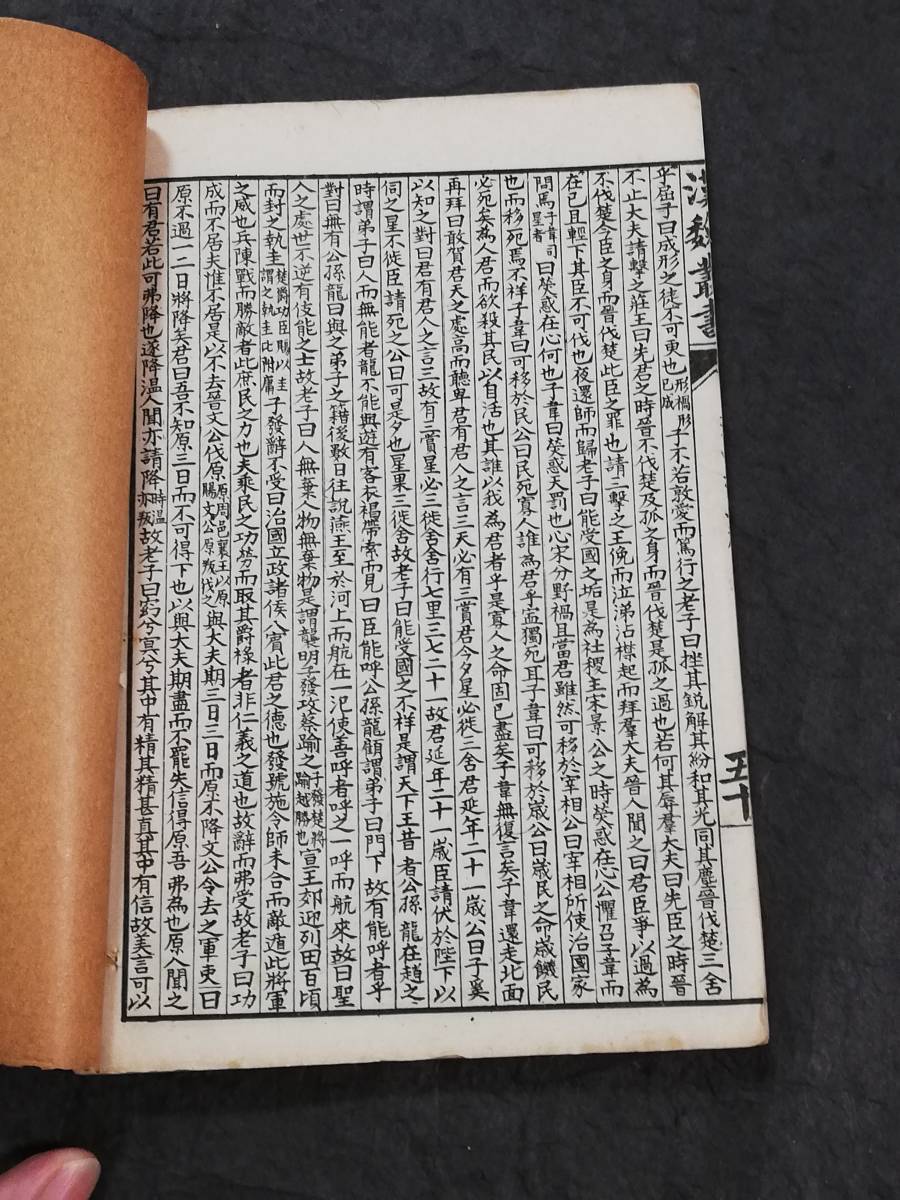 漢魏叢書
五十
乎屈子曰成形之徒不可更也形禍形已成子不若敦愛而篤行之老子曰挫其銳解其紛和其光同其塵晉伐楚三舍
不止大夫請擊之莊王曰先君之時晉不伐楚及孤之身而晉伐楚是孤之過也若何其辱羣大夫曰先臣之時晉
不伐楚今臣之身而晉伐楚此臣之罪也請三擊之王俛而泣涕沾襟起而拜羣大夫晉人聞之曰君臣爭以過為
在已且輕下其臣不可伐也夜還師而歸老子曰能受國之垢是為社稷主宋景公之時熒惑在心公懼召子韋而
問焉子韋司星者曰熒惑在心何也子韋曰熒惑天罰也心宋分野禍且當君雖然可移於宰相公曰宰相所使治國家
也而移死焉不祥子韋曰可移於民公曰民死寡人誰為君乎寍獨死耳子韋曰可移於歲公曰歲民之命歲饑民
必死矣為人君而欲殺其民以自活也其誰以我為君者乎是寡人之命固已盡矣子韋無復言矣子韋還走北面
再拜曰敢賀君天之處高而聽卑君有君人之言三天必有三賞君今夕星必徙三舍君延年二十一歲公曰子奚
以知之對曰君有君人之言三故有三賞星必三徙舍舍行七里三七二十一故君延年二十一歲臣請伏於陛下以
伺之星不徙臣請死之公曰可是夕也星果三徙舍故老子曰能受國之不祥是謂天下王昔者公孫龍在趙之
時謂弟子曰人而無能者龍不能與遊有客衣褐帶索而見曰臣能呼公孫龍顧謂弟子曰門下故有能呼者乎
對曰無有公孫龍曰與之弟子之籍後數日往說燕王至於河上而航在一汜使善呼者呼之一呼而航來故曰聖
人之處世不逆有伎能之士故老子曰人無棄人物無棄物是謂襲明子發攻蔡踰之子發楚將踰越勝也宣王郊迎列田百頃
而封之執圭楚爵功臣賜以圭謂之執圭比附庸子發辭不受曰治國立政諸侯入賓此君之德也發號施令師未合而敵遁此將軍
之威也兵陳戰而勝敵者此庶民之力也夫乘民之功勞而取其爵祿者非仁義之道也故辭而弗受故老子曰功
成而不居夫惟不居是以不去晉文公伐原原周邑襄王以原賜文公原叛伐之與大夫期三日三日而原不降文公令去之軍吏曰
原不過一二日將降矣君曰吾不知原三日而不可得下也以與大夫期盡而不罷失信得原吾弗為也原人聞之
曰有君若此可弗降也遂降溫人聞亦請降時溫亦叛故老子曰窈兮冥兮其中有精其精甚真其中有信故美言可以